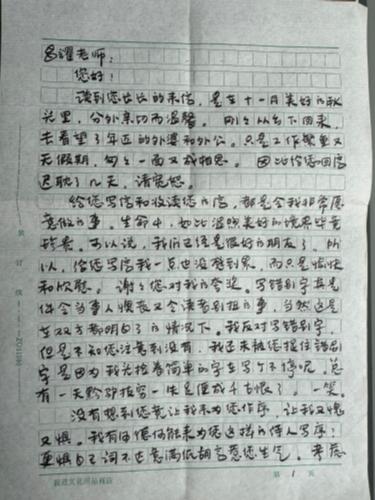 昌耀老师：
您好！
读到您长长的来信，是在十一月美好的秋
光里，分外亲切而温馨。刚刚从乡下回来，
去看望了年迈的外婆和外公。只是工作繁重又
无假期，匆匆一面又成相思。因此给您回信
迟耽了几天，请宽恕。
给您写信和收读您的信，都是令我非常愿
意做的事。生命中，如此温照美好的境界毕竟
珍贵。可以说，我们已经是很好的朋友了。所
以，给您写信我一点也没感到累，而只是愉快
和欣慰。谢谢您对我的夸奖。写错别字真是
件令当事人懊丧又令读者别扭的事，当然这是
在双方都明白了的情况下。我反对写错别字，
但是不知您注意到没有，我还未被您捉住错别
字是因为我总捡着简单的字在写个不停呢，总
有一天黔驴技穷一失足便成千古恨了。一笑。
没有想到您竟让我来为您作序，让我又愧
又惧。我有何德何能来为您这样的诗人写序；
更惧自己词不达意满纸胡言惹您生气。考虑
第 1 页